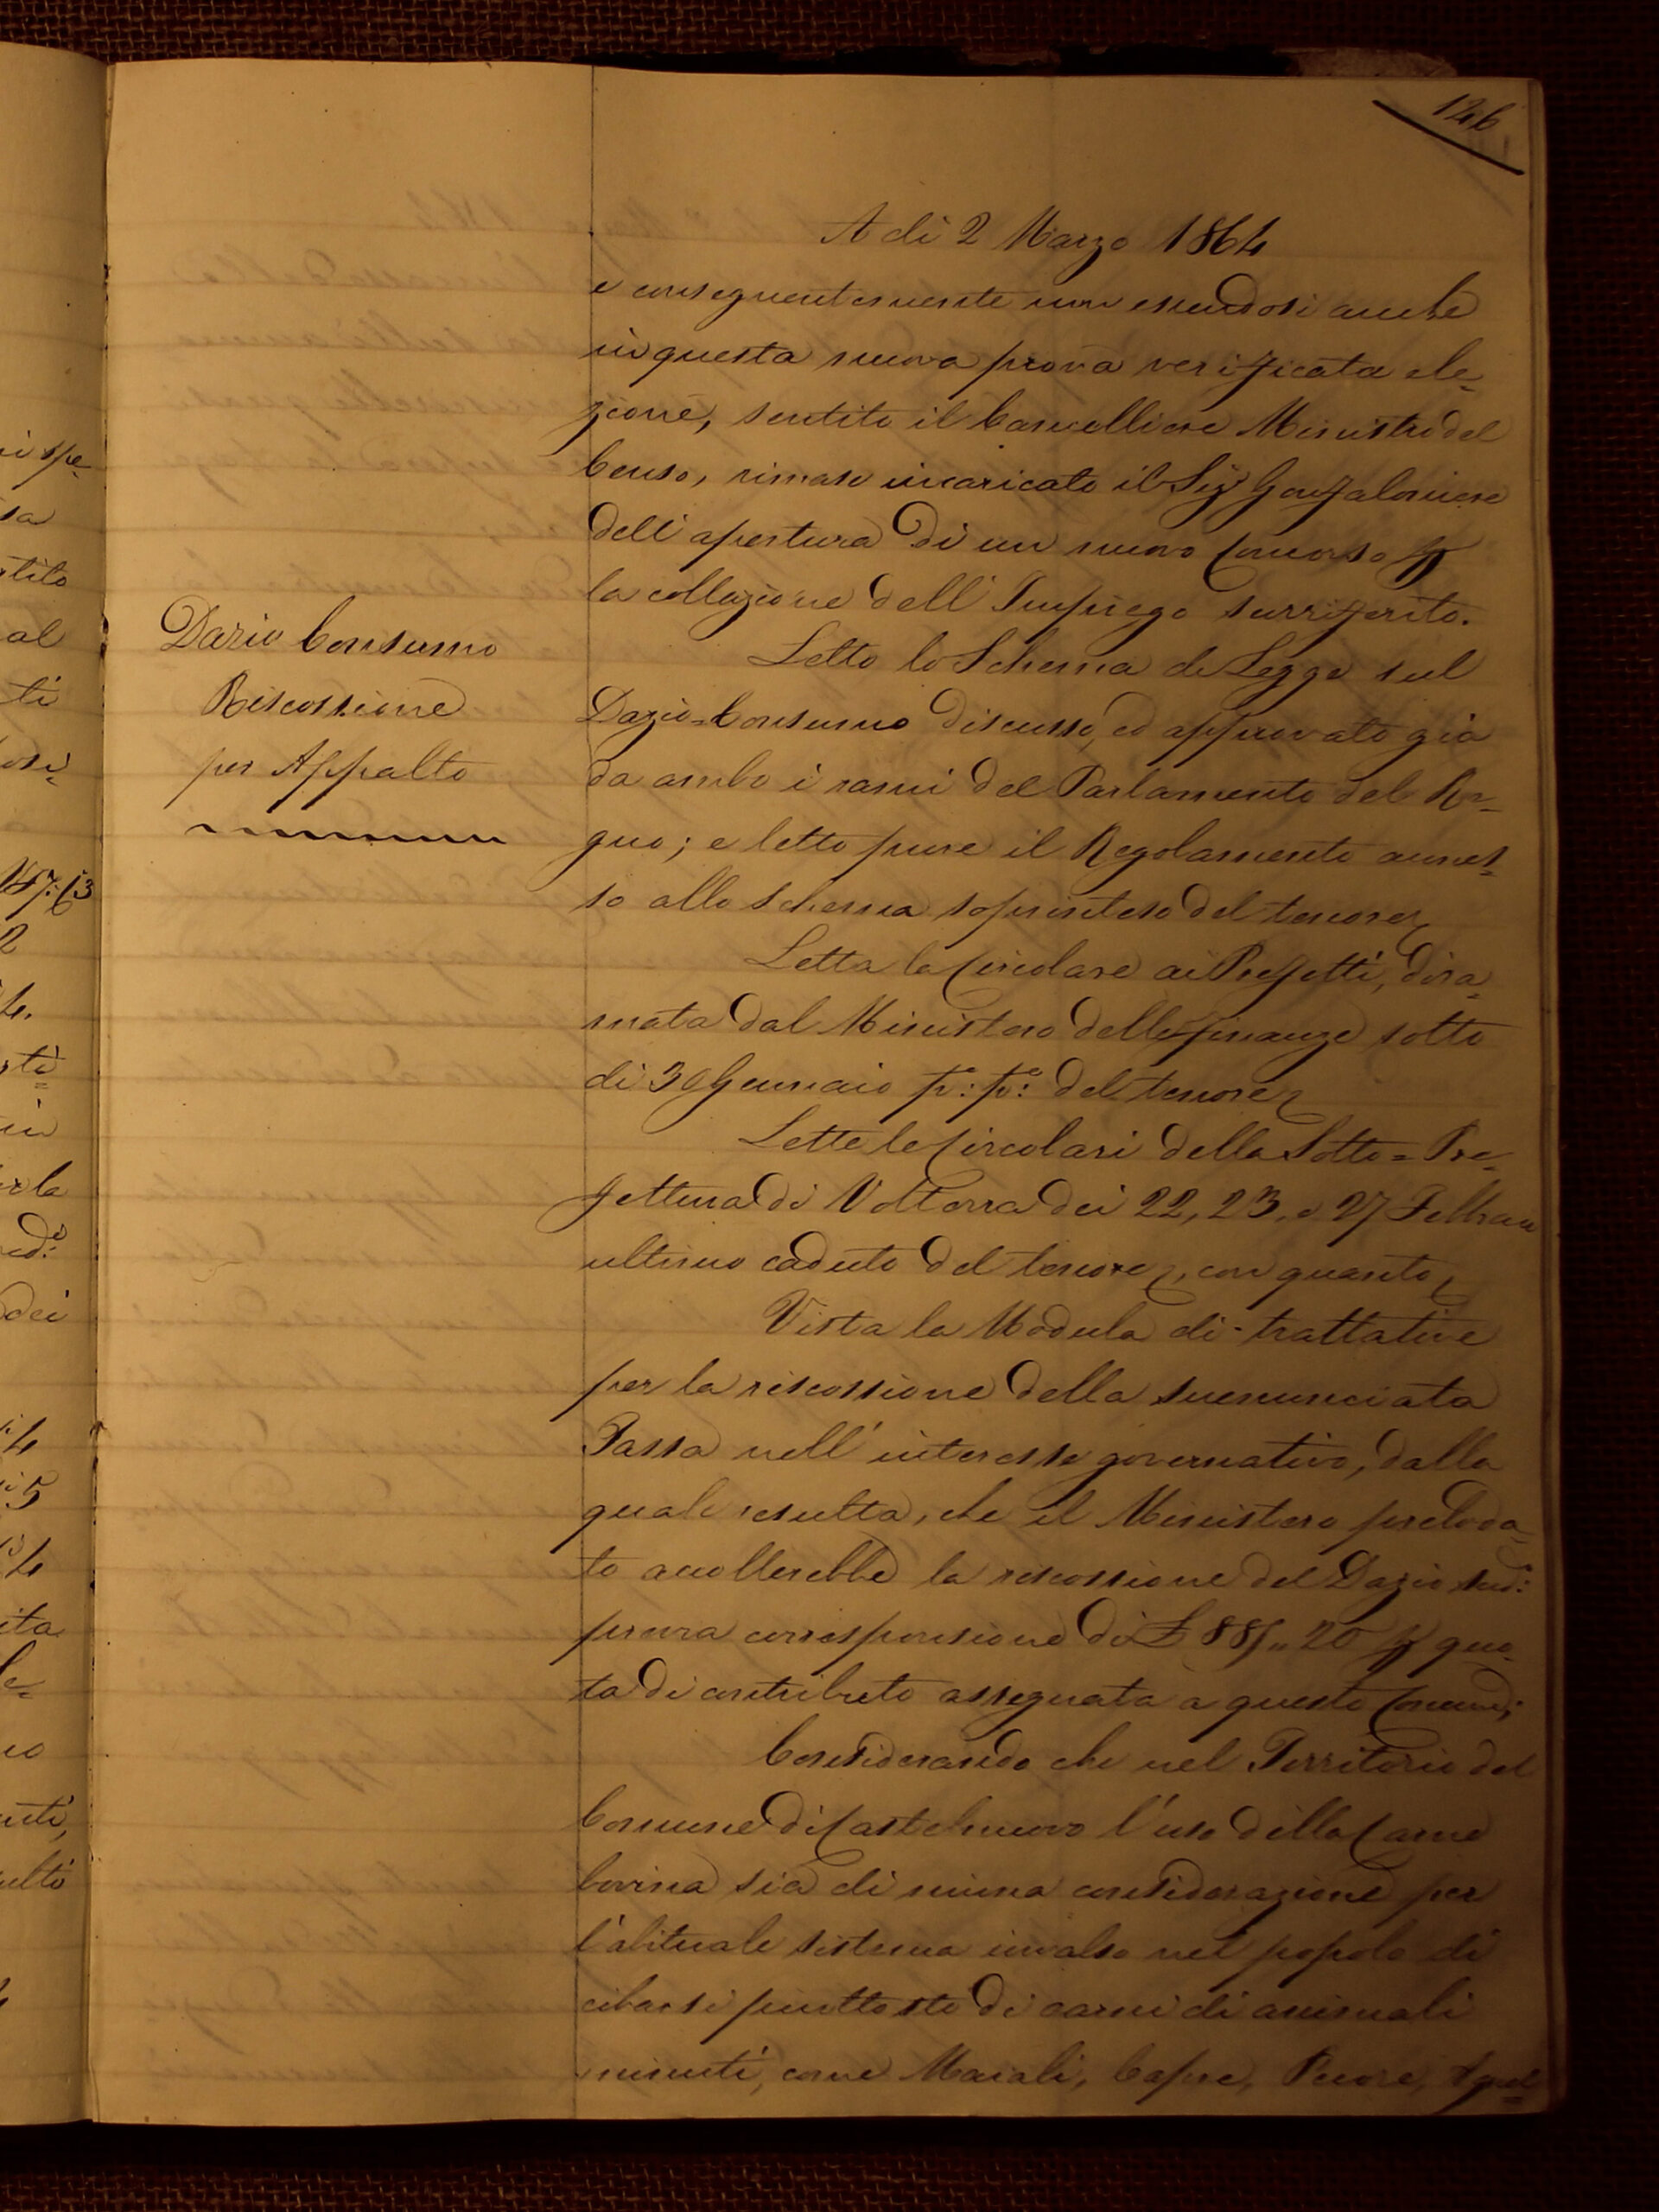 126
A di 2 Marzo 1864
e conseguentemente non essendosi anche
in questa nuova prova verificata ele=
zione, sentito il Cancelliere Ministro del
Censo, rimase incaricato il Sig. Gonfaloniere
dell'apertura di un nuovo Concorso p
la collazione dell'Impiego surriferito.
Dazio Consumo
Riscossione
per Appalto
Letto lo Schema di Legge sul
Dazio=Consumo discusso, ed approvato già
da ambo i rami del Parlamento del Re=
gno; e letto pure il Regolamento annes=
so allo schema soprainteso del tenore
Letta la Circolare ai Prefetti, dira=
mata dal Ministero delle Finanze sotto
di 30 Gennaio p.º p.º del tenore
Lette le Circolari della Sotto=Pre=
fettura di Volterra dei 22, 23, e 27 Febbraio
ultimo caduto del tenore, con quanto
Vista la Modula di trattative
per la riscossione della suenunciata
Tassa nell'interesse governativo, dalla
quale resulta, che il Ministero preloda=
to accollerebbe la riscossione del Dazio sud.º
previa corresponsione di £ 20 p quo=
ta di contributo assegnata a questo Comune;
Considerando che nel Territorio del
Comune di Castelnuovo l'uso della Carne
bovina sia di niuna considerazione per
l'abituale sistema invalso nel popolo di
cibarsi piuttosto di carni di animali
minuti, come Maiali, Capre, Pecore, Agnel=
i spe=
sa
tito
al
ti
osi=
2
4.
sti=
in
la
ed.º
dei
4
5
4
ita
le=
io
uti,
ulti